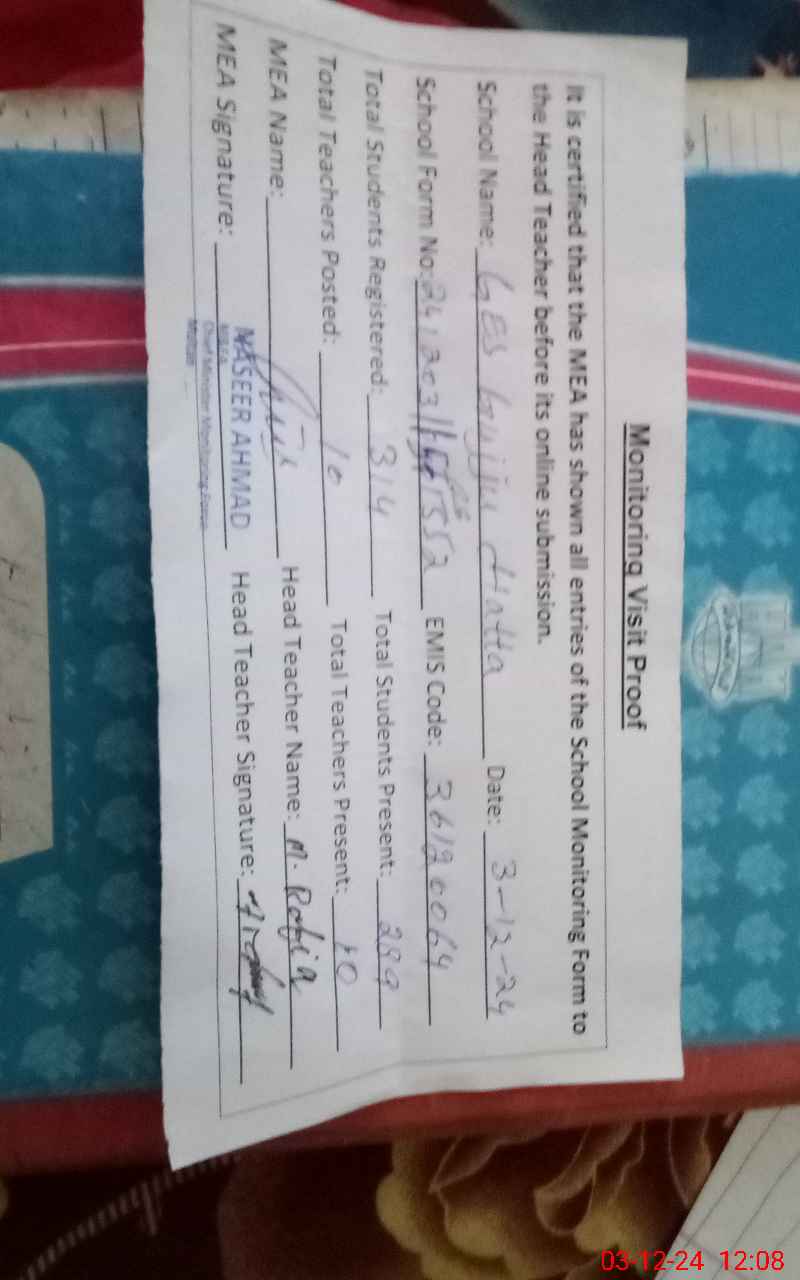 Monitoring Visit Proof
It is certified that the MEA has shown all entries of the School Monitoring Form to
the Head Teacher before its online submission.
School Name: GES Hatta Date: 3-12-24
School Form No: EMIS Code: 36120064
Total Students Registered: 314 Total Students Present: 289
Total Teachers Posted: 10 Total Teachers Present: 10
MEA Name: Head Teacher Name: M. Rafia
MEA Signature: Head Teacher Signature:
NASEER AHMAD
MEA
Chief Minister Monitoring Force
03-12-24 12:08